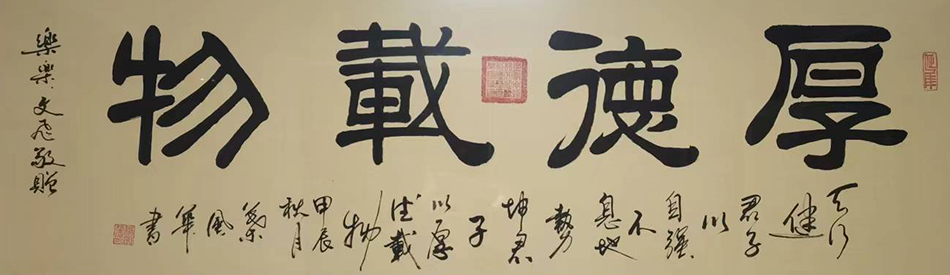 厚徳載物
天行
健
君子
以
自強
不
息地
勢
坤君
子
以厚
德載
物
甲辰
秋月
風
華
書
樂樂文飛敬贈